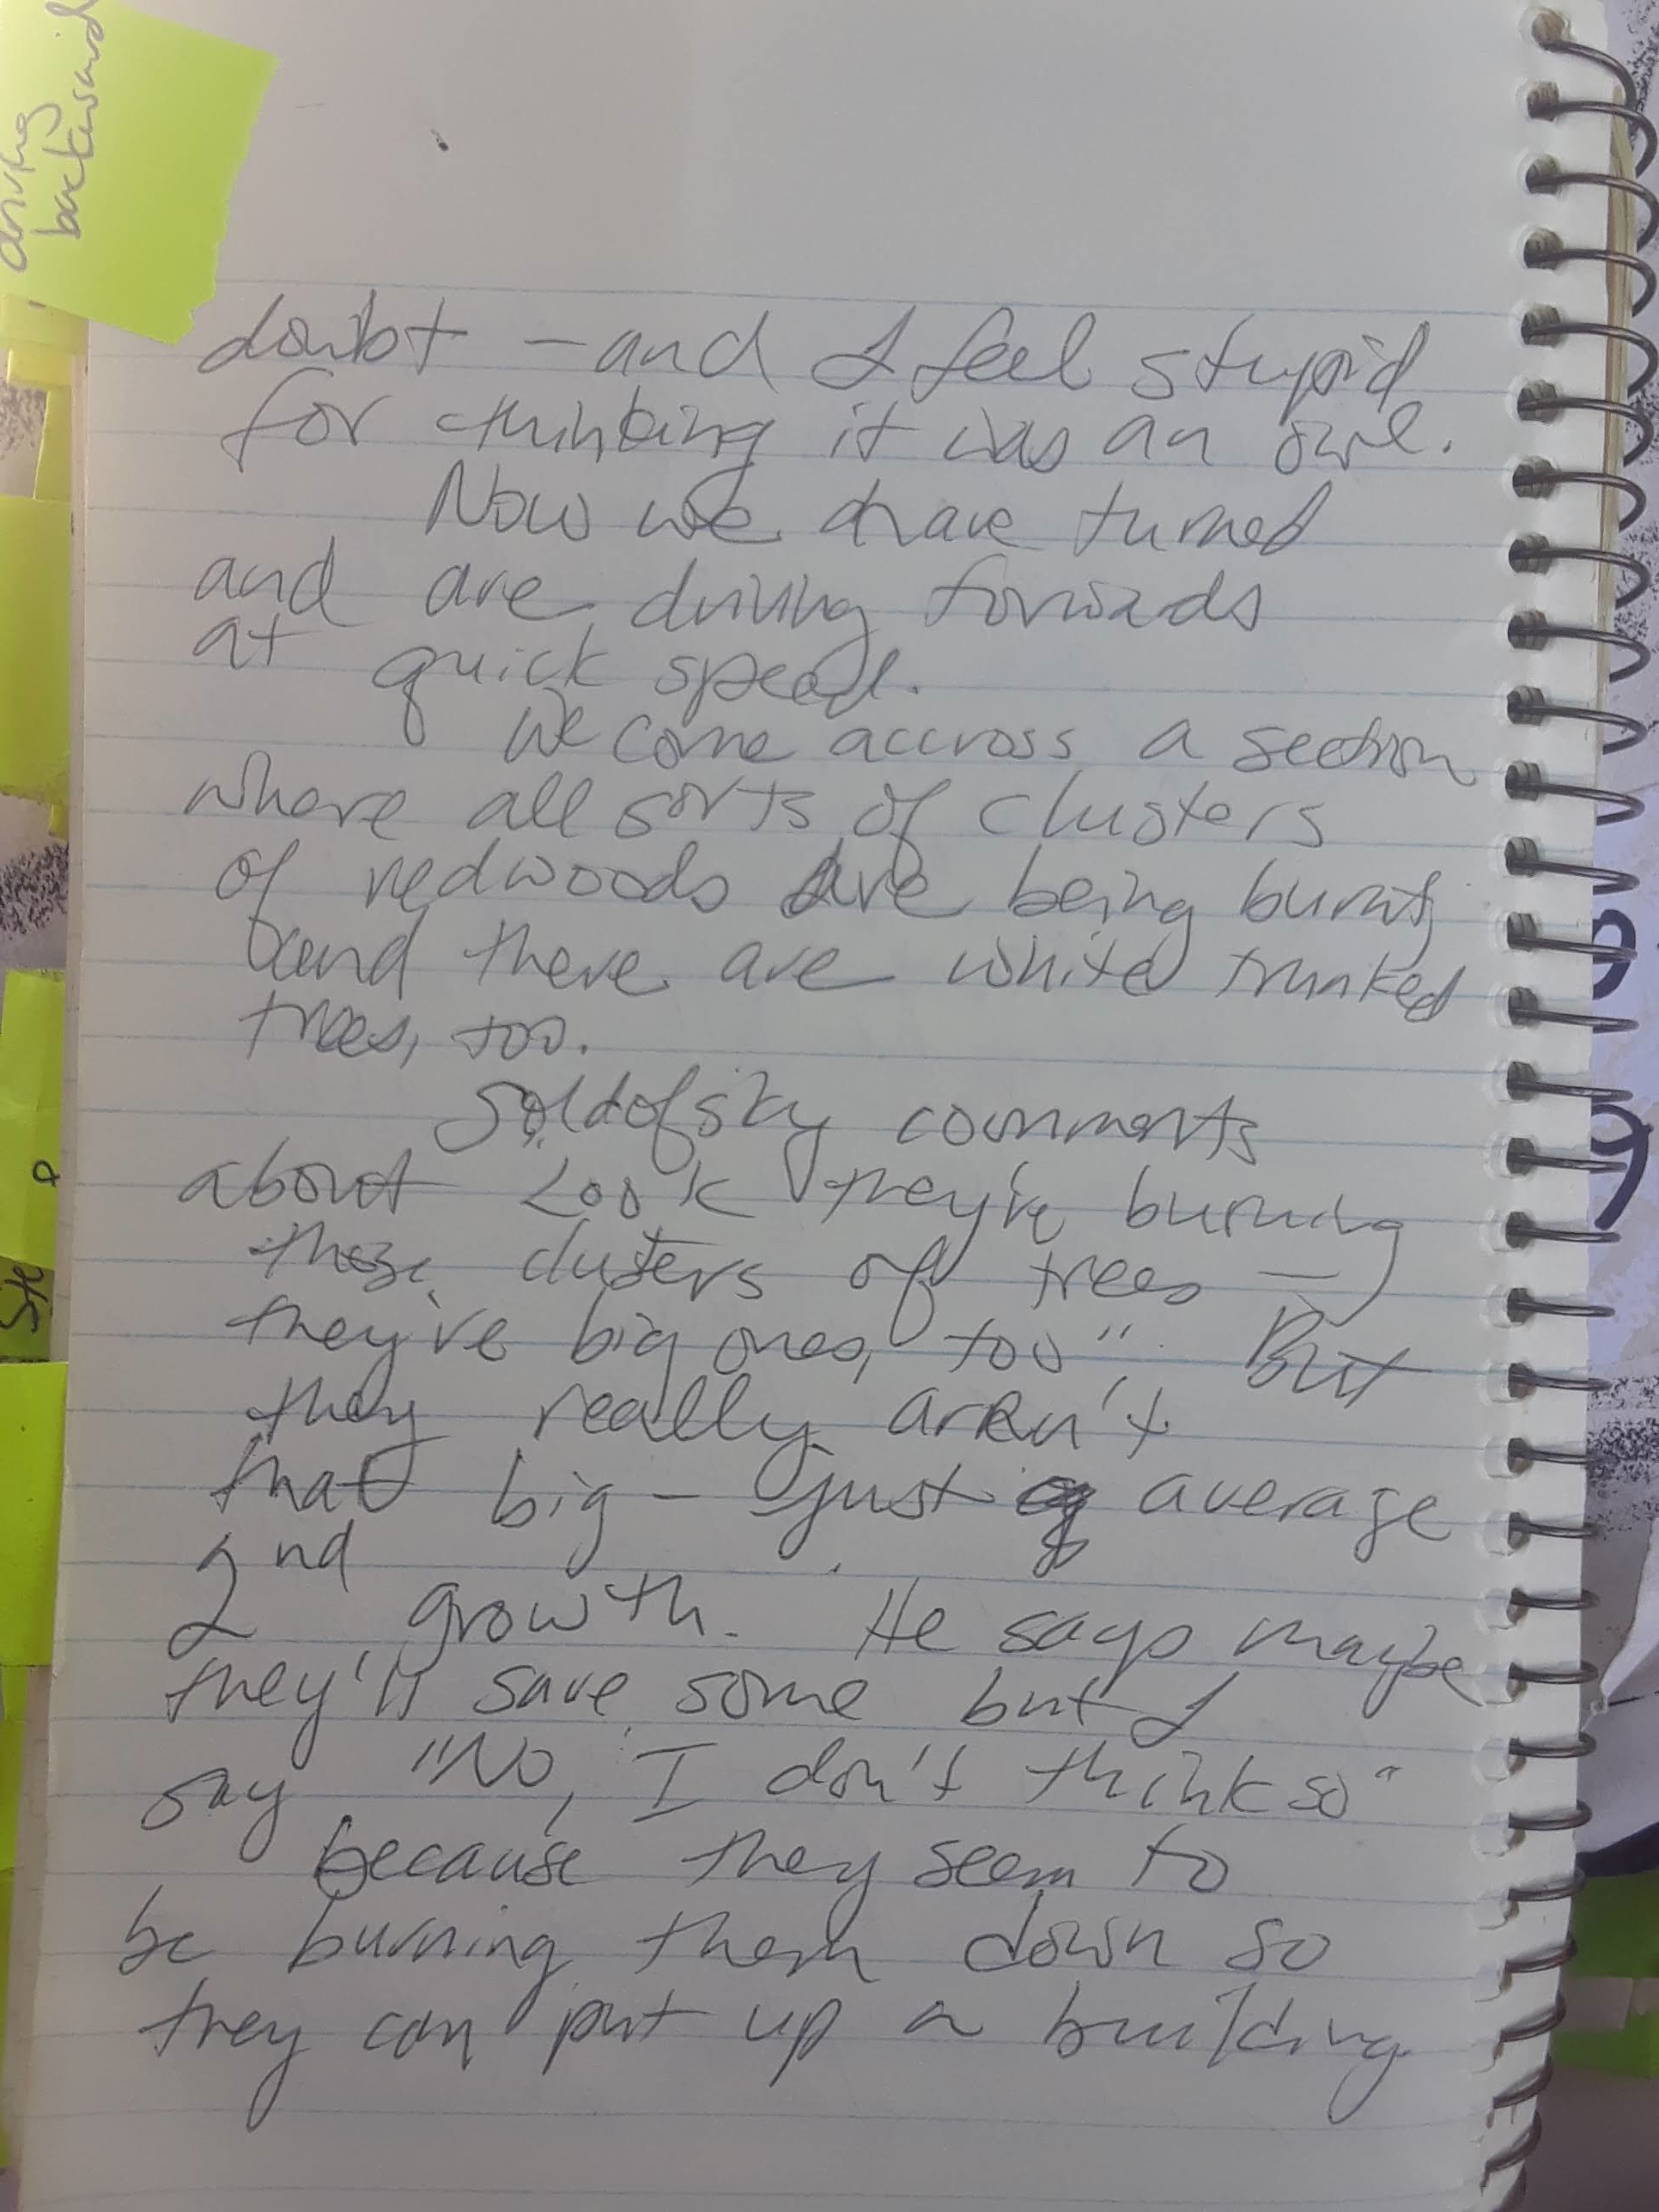 driving
backward
doubt – and I feel stupid
for thinking it was an owl.
Now we have turned
and are driving forwards
at quick speed.
We come accross a section
where all sorts of clusters
of redwoods are being burnt
and there are white trunked
trees, too.
Soldofsky comments
about "Look they're burning
those clusters of trees –
they've big ones, too". But
they really aren't
that big – just average
2nd growth. He says maybe
they'll save some but I
say "No, I don't think so"
because they seem to
be burning them down so
they can put up a building